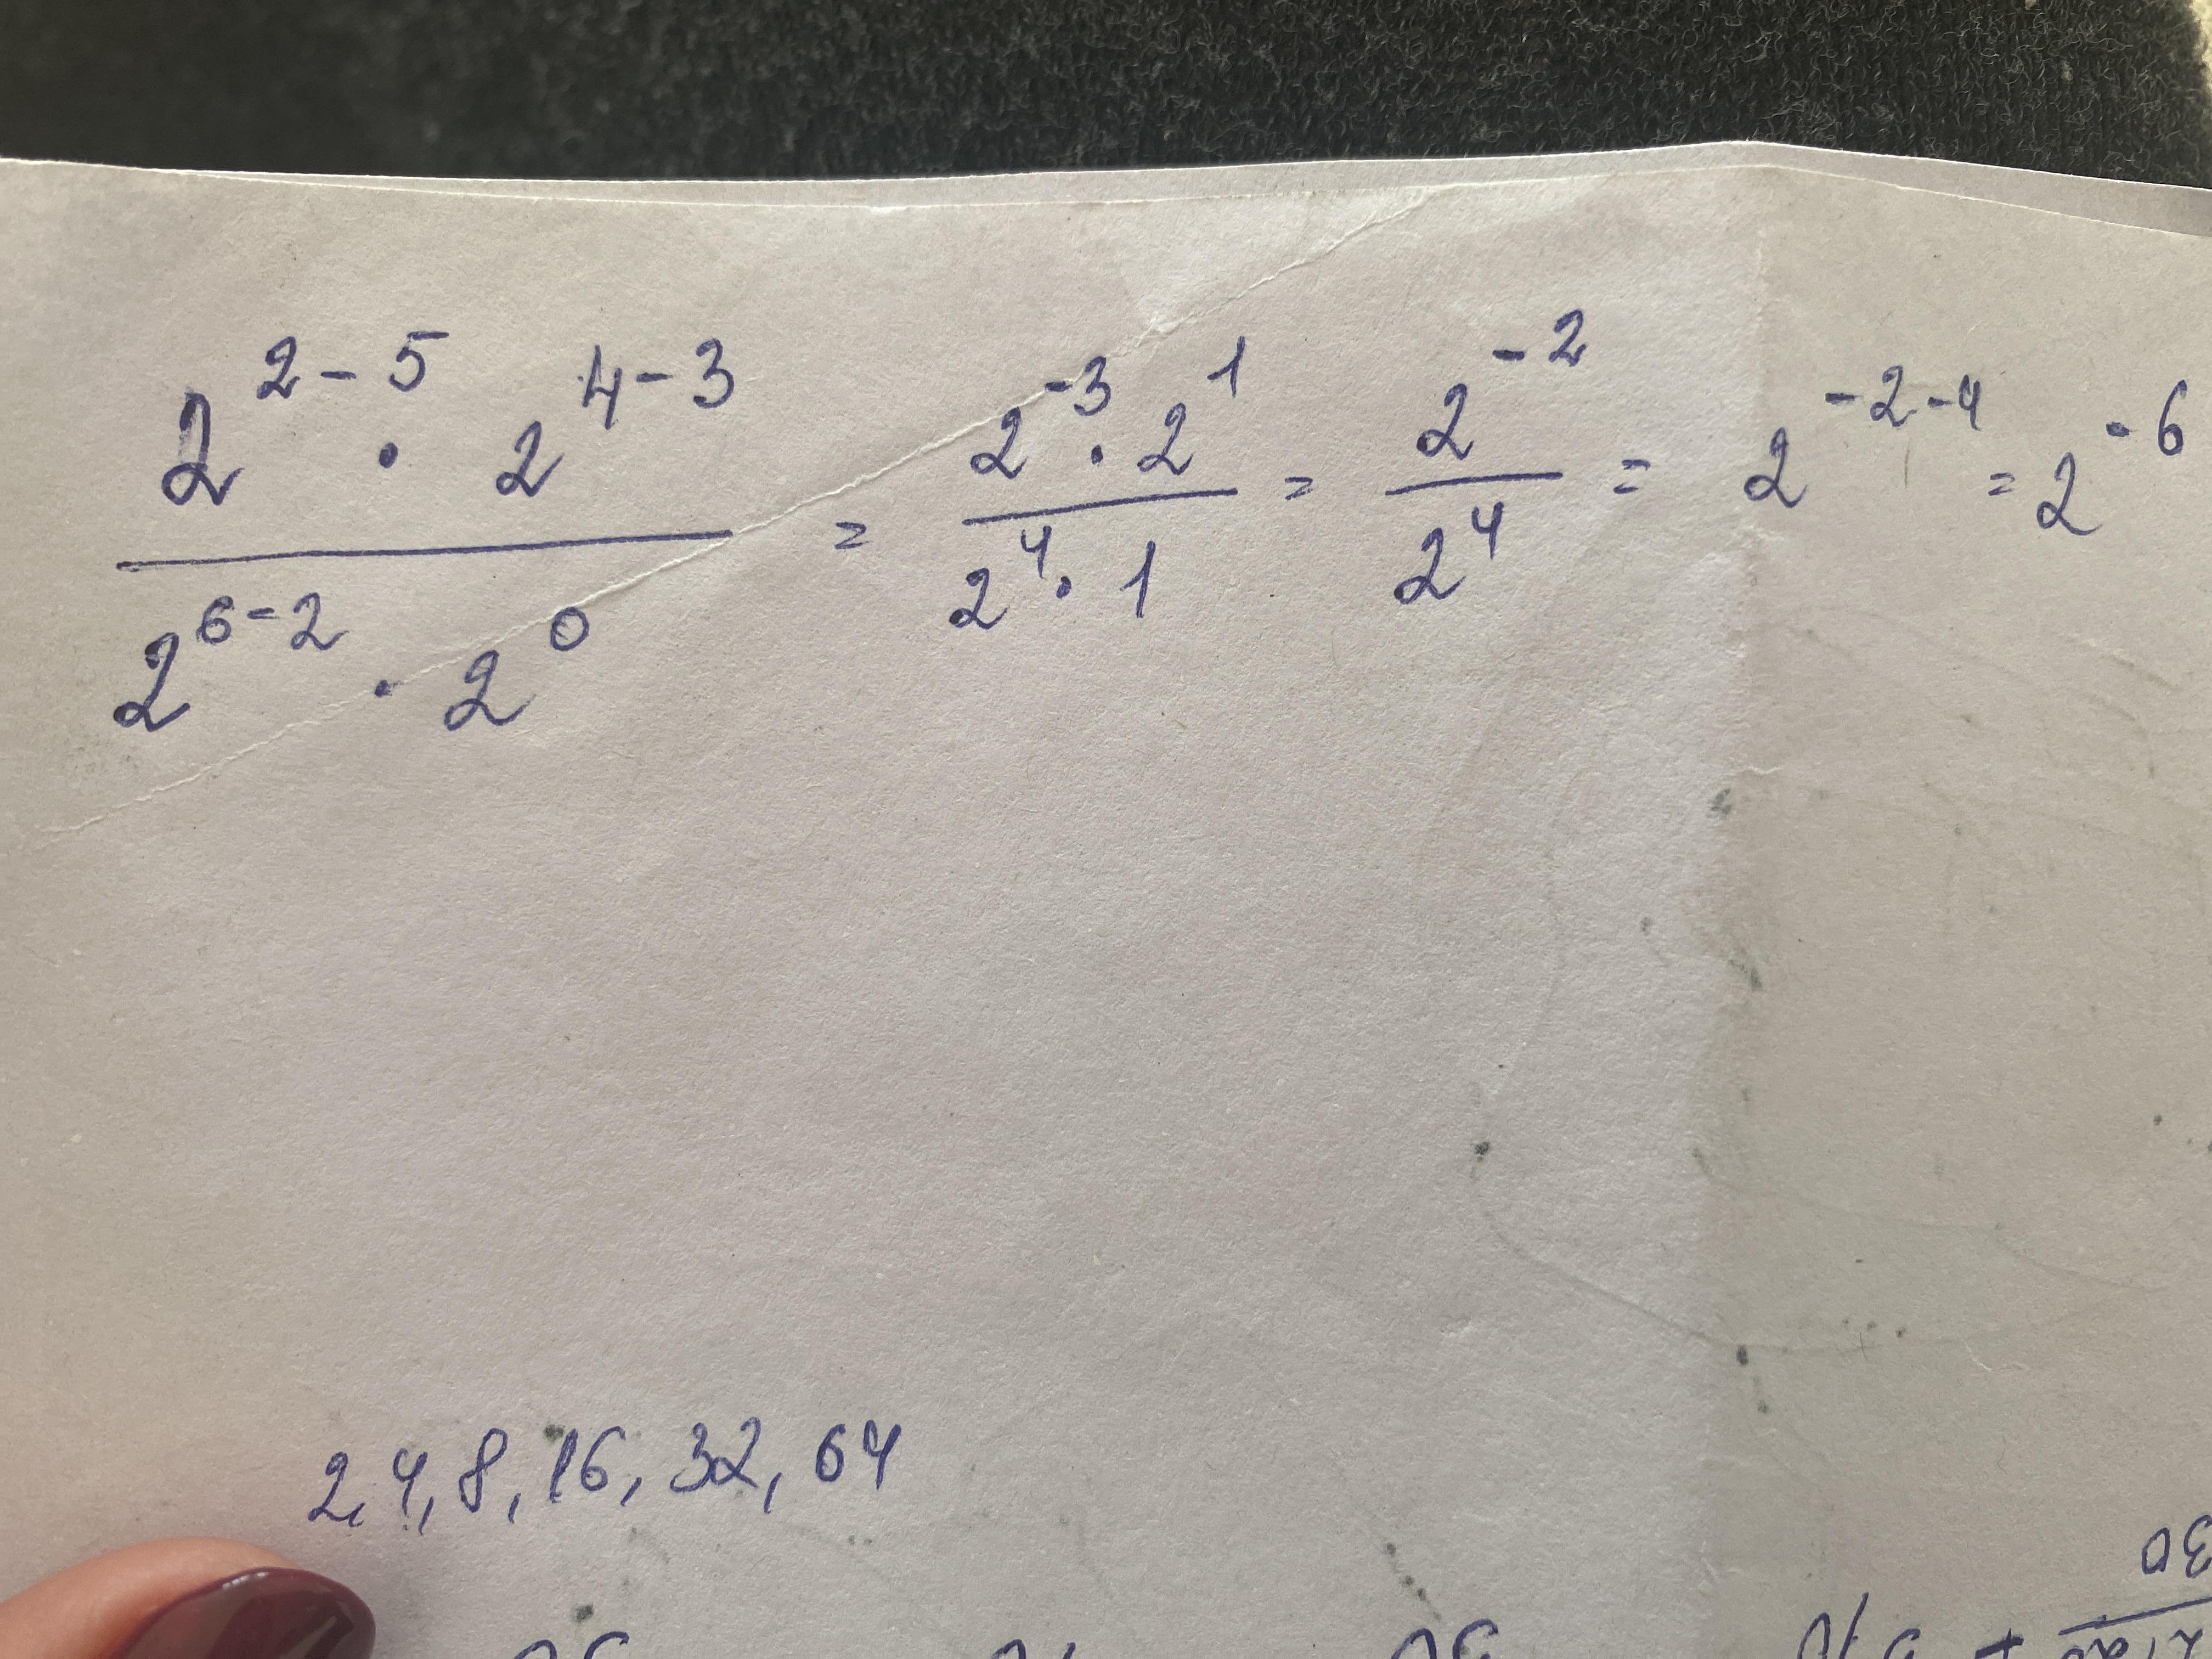 2^{2-5} · 2^{4-3} / 2^{6-2} · 2^0 = 2^{-3} · 2^1 / 2^4 · 1 = 2^{-2} / 2^4 = 2^{-2-4} = 2^{-6}
2,4,8,16,32,64
30